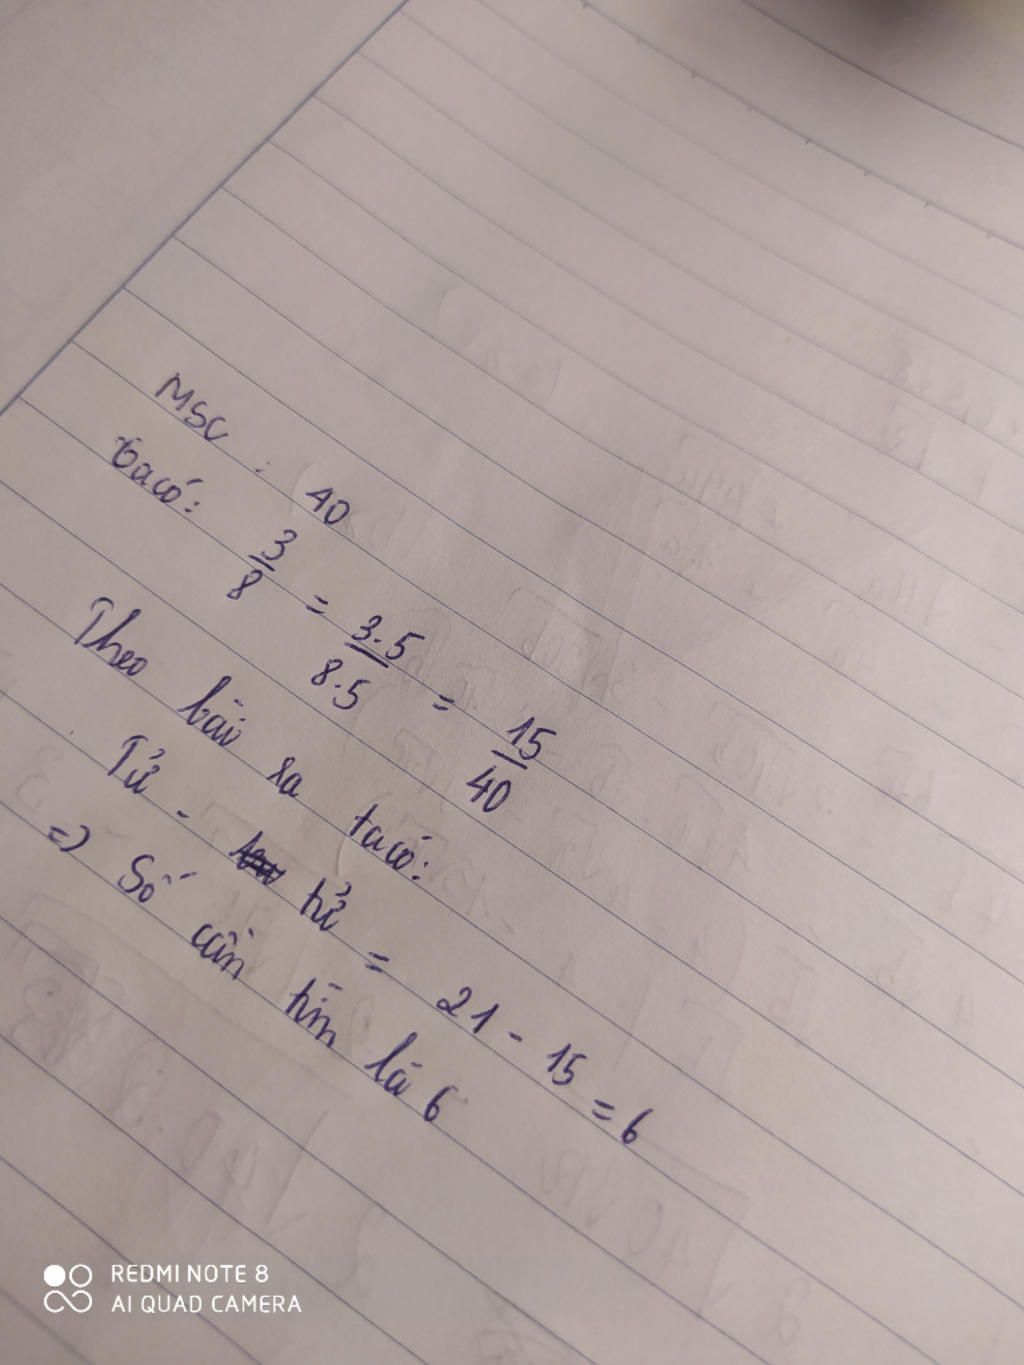 MSC : 40
ta có: 3/8 = 3.5/8.5 = 15/40
Theo bài ra ta có:
Tử - tử = 21 - 15 = 6
=> Số cần tìm là 6
REDMI NOTE 8
AI QUAD CAMERA